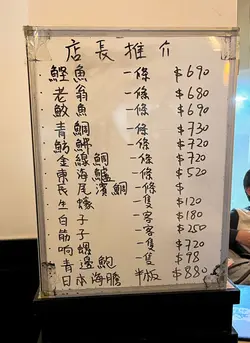 店長推介
鰹魚 一條 $690
老翁 一條 $680
敏魚 一條 $690
青鯛 一條 $730
魴鮄 一條 $720
金線鯛 一條 $720
東海鱸 一條 $520
民尾濱鯛 一條 $
生蠔 一隻 $120
白子 一客 $180
筋子 一客 $250
响螺 一隻 $720
青邊鮑 一隻 $98
日本海膽 半版 $880